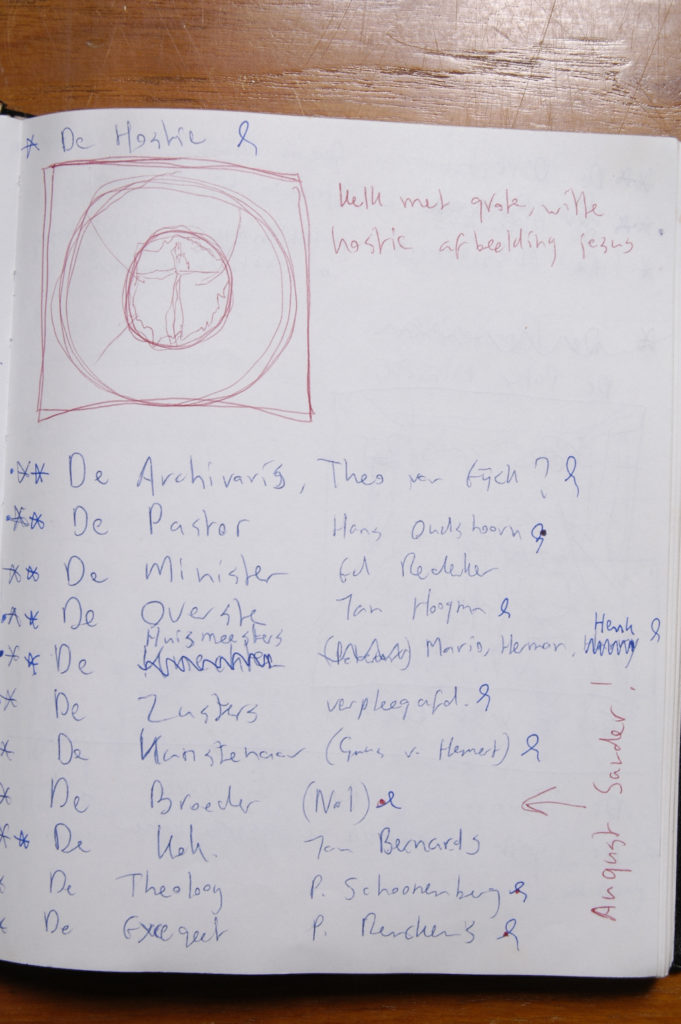 * De Hostie
Kelk met grote, witte
hostie afbeelding jezus
** De Archivaris, Theo van Eijck?
** De Pastor Hans Oudshoorn
** De Minister Ed Redeker
** De Overste Jan Hoogma
Huismeesters Henk
** De Mario, Herman,
* De Zusters verpleegafd.
* De Kunstenaar (Guus v. Hemert)
* De Broeder (Nol) ←
** De Kok. Jan Bernards
* De Theoloog P. Schoonenberg
* De Exegeet P. Renckens
August Sander!